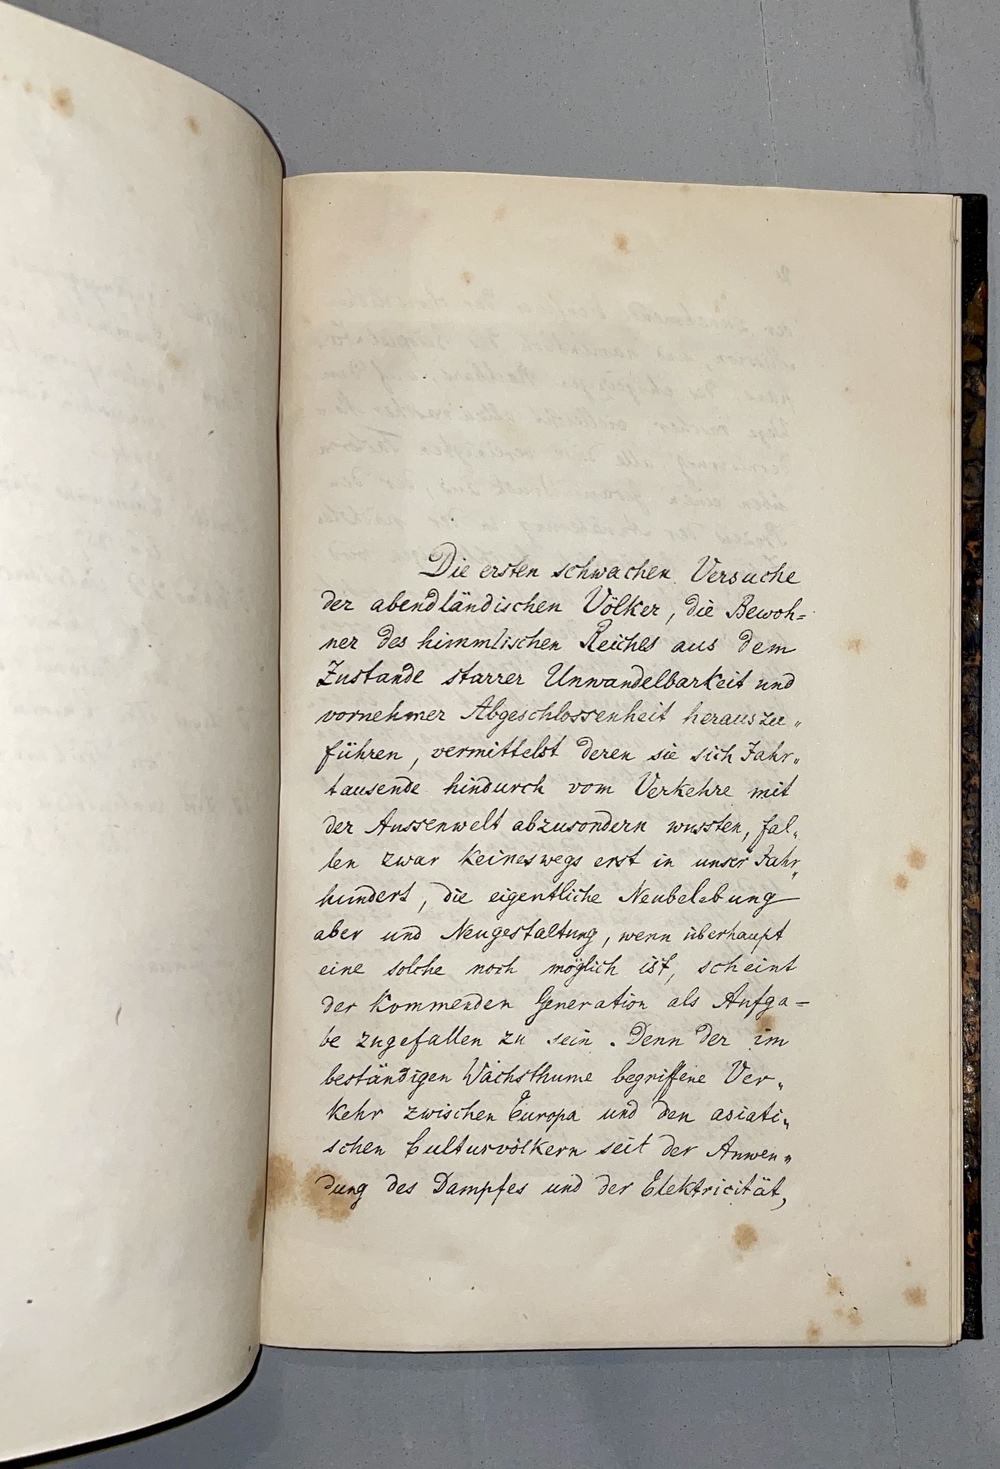 Die ersten schwachen Versuche
der abendländischen Völker, die Bewoh=
ner des himmlischen Reiches aus dem
Zustande starrer Unwandelbarkeit und
vornehmer Abgeschlossenheit herauszu„
führen, vermittelst deren sie sich Jahr„
tausende hindurch vom Verkehre mit
der Aussenwelt abzusondern wussten, fal„
len zwar keineswegs erst in unser Jahr„
hundert, die eigentliche Neubelebung
aber und Neugestaltung, wenn überhaupt
eine solche noch möglich ist, scheint
der kommenden Generation als Aufga=
be zugefallen zu sein. Denn der im
beständigen Wachsthume begriffene Ver„
kehr zwischen Europa und den asiati„
schen Culturvölkern seit der Anwen„
dung des Dampfes und der Elektricität,